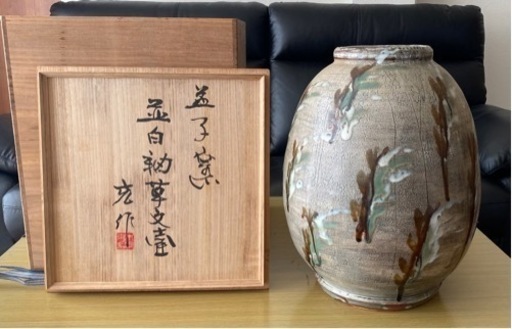 益子窯
並白釉草文壷
宏作